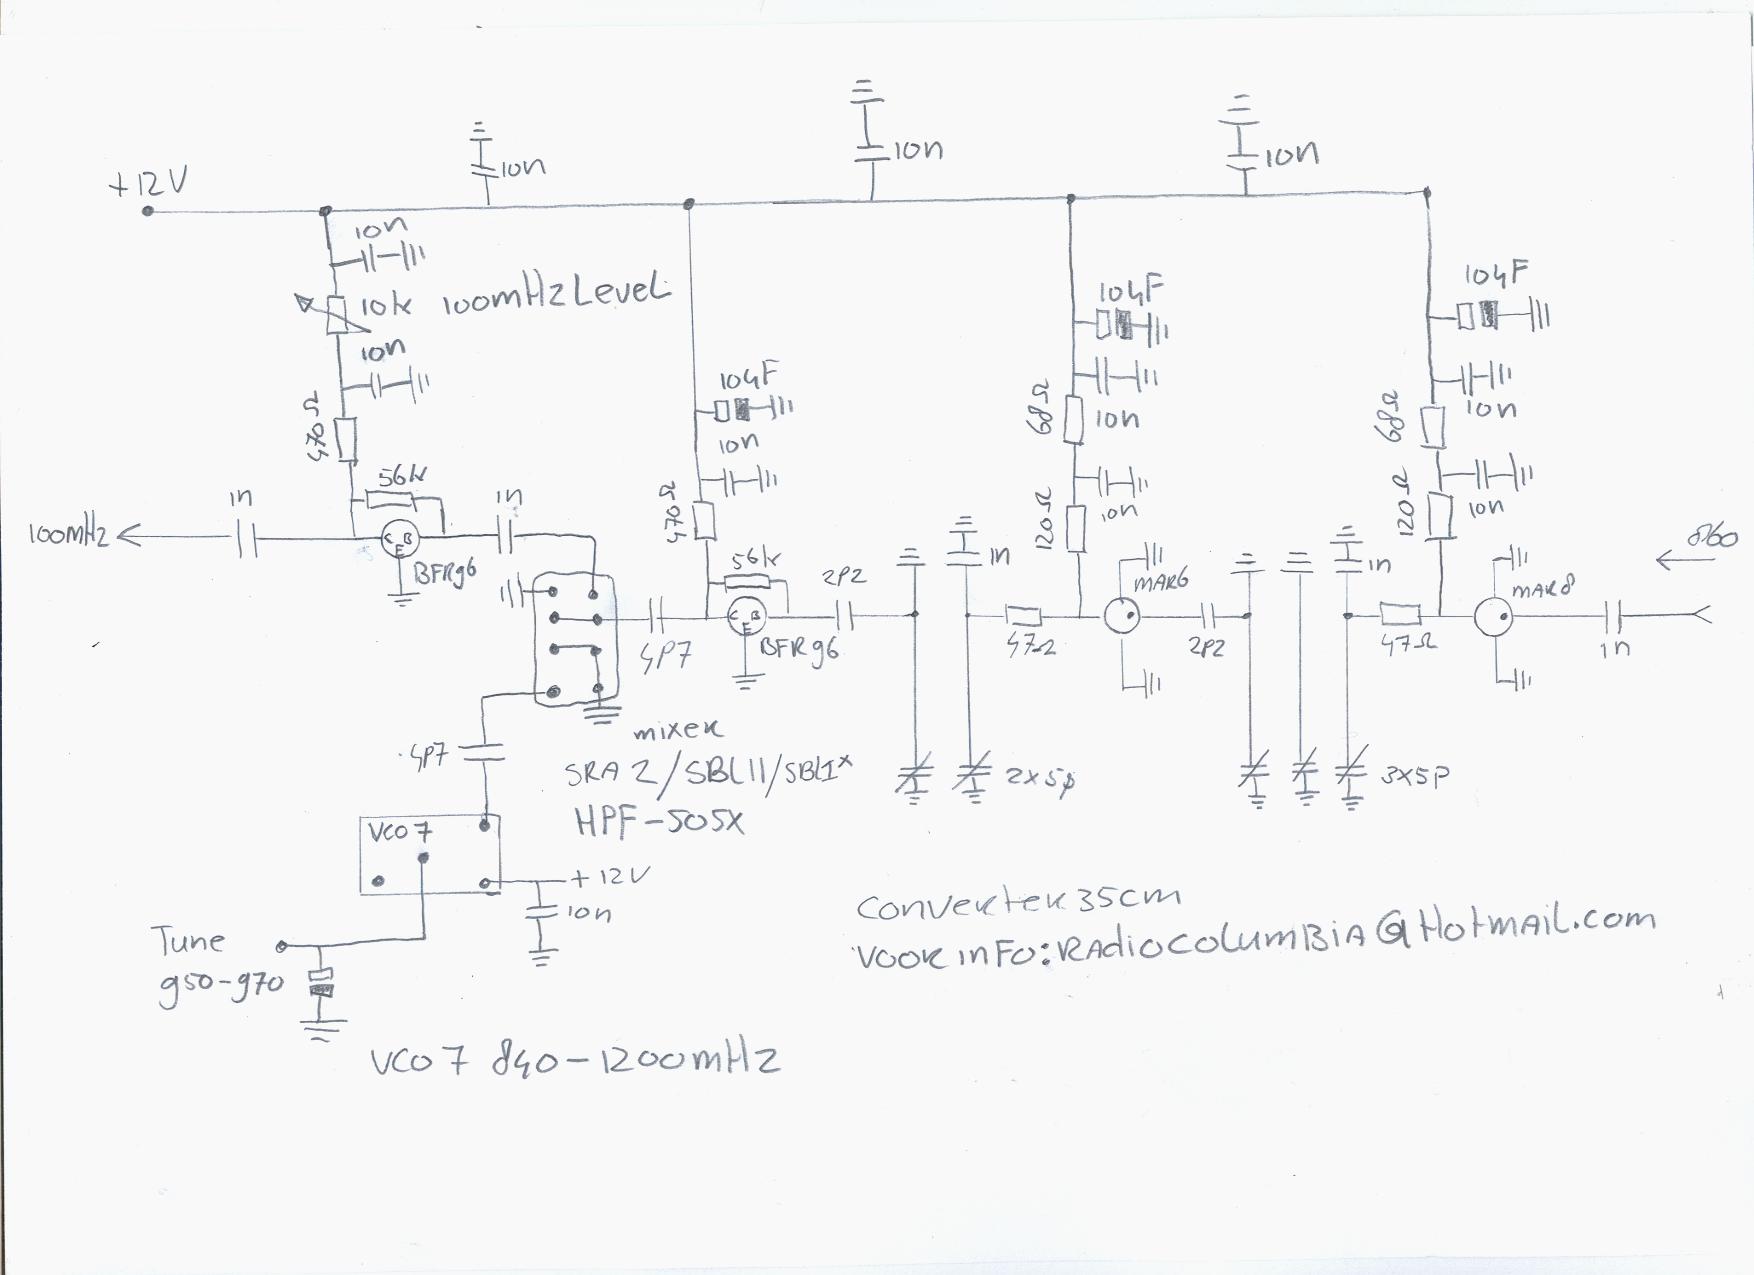 +12V
10n
10n
10n
10n
10k 100mHz Level
10n
470Ω
56k
1n
1n
100mHz
C B E
BFR96
10µF
10n
470Ω
56k
2P2
C B E
BFR96
4P7
1n
10µF
10n
68Ω
10n
120Ω
47Ω
MAR6
2P2
1n
10µF
10n
68Ω
10n
120Ω
47Ω
MAR8
1n
860
mixer
SRA 2/SBL11/SBL1x
HPF-505X
2x5p
3x5P
4P7
VCO 7
+12V
10n
Tune
950-970
VCO 7 840-1200mHz
Converter 35cm
Voor info: RadioColumbia@Hotmail.com